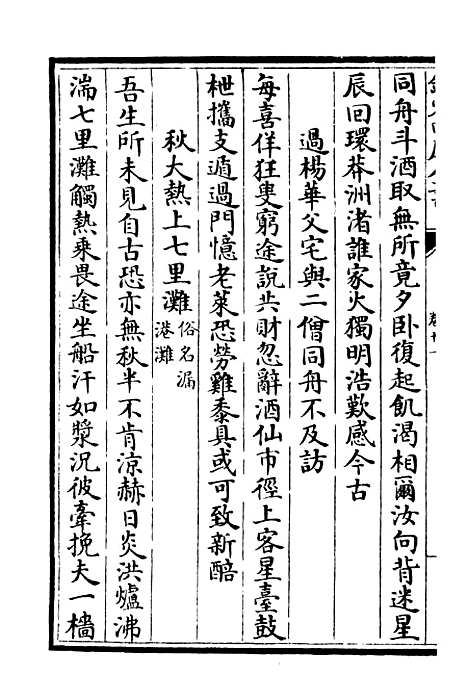 同舟斗酒取無所竟夕卧復起飢渴相爾汝向背迷星
辰回環莽洲渚誰家火獨明浩歎感今古
過楊華父宅與二僧同舟不及訪
每喜佯狂叟窮途說共財忽辭酒仙市徑上客星臺鼓
枻攜支遁過門憶老萊恐勞雞黍具或可致新醅
秋大熱上七里灘俗名漏港灘
吾生所未見自古恐亦無秋半不肯涼赫日炎洪爐沸
湍七里灘觸熱乘畏途坐船汗如漿況彼牽挽夫一檣